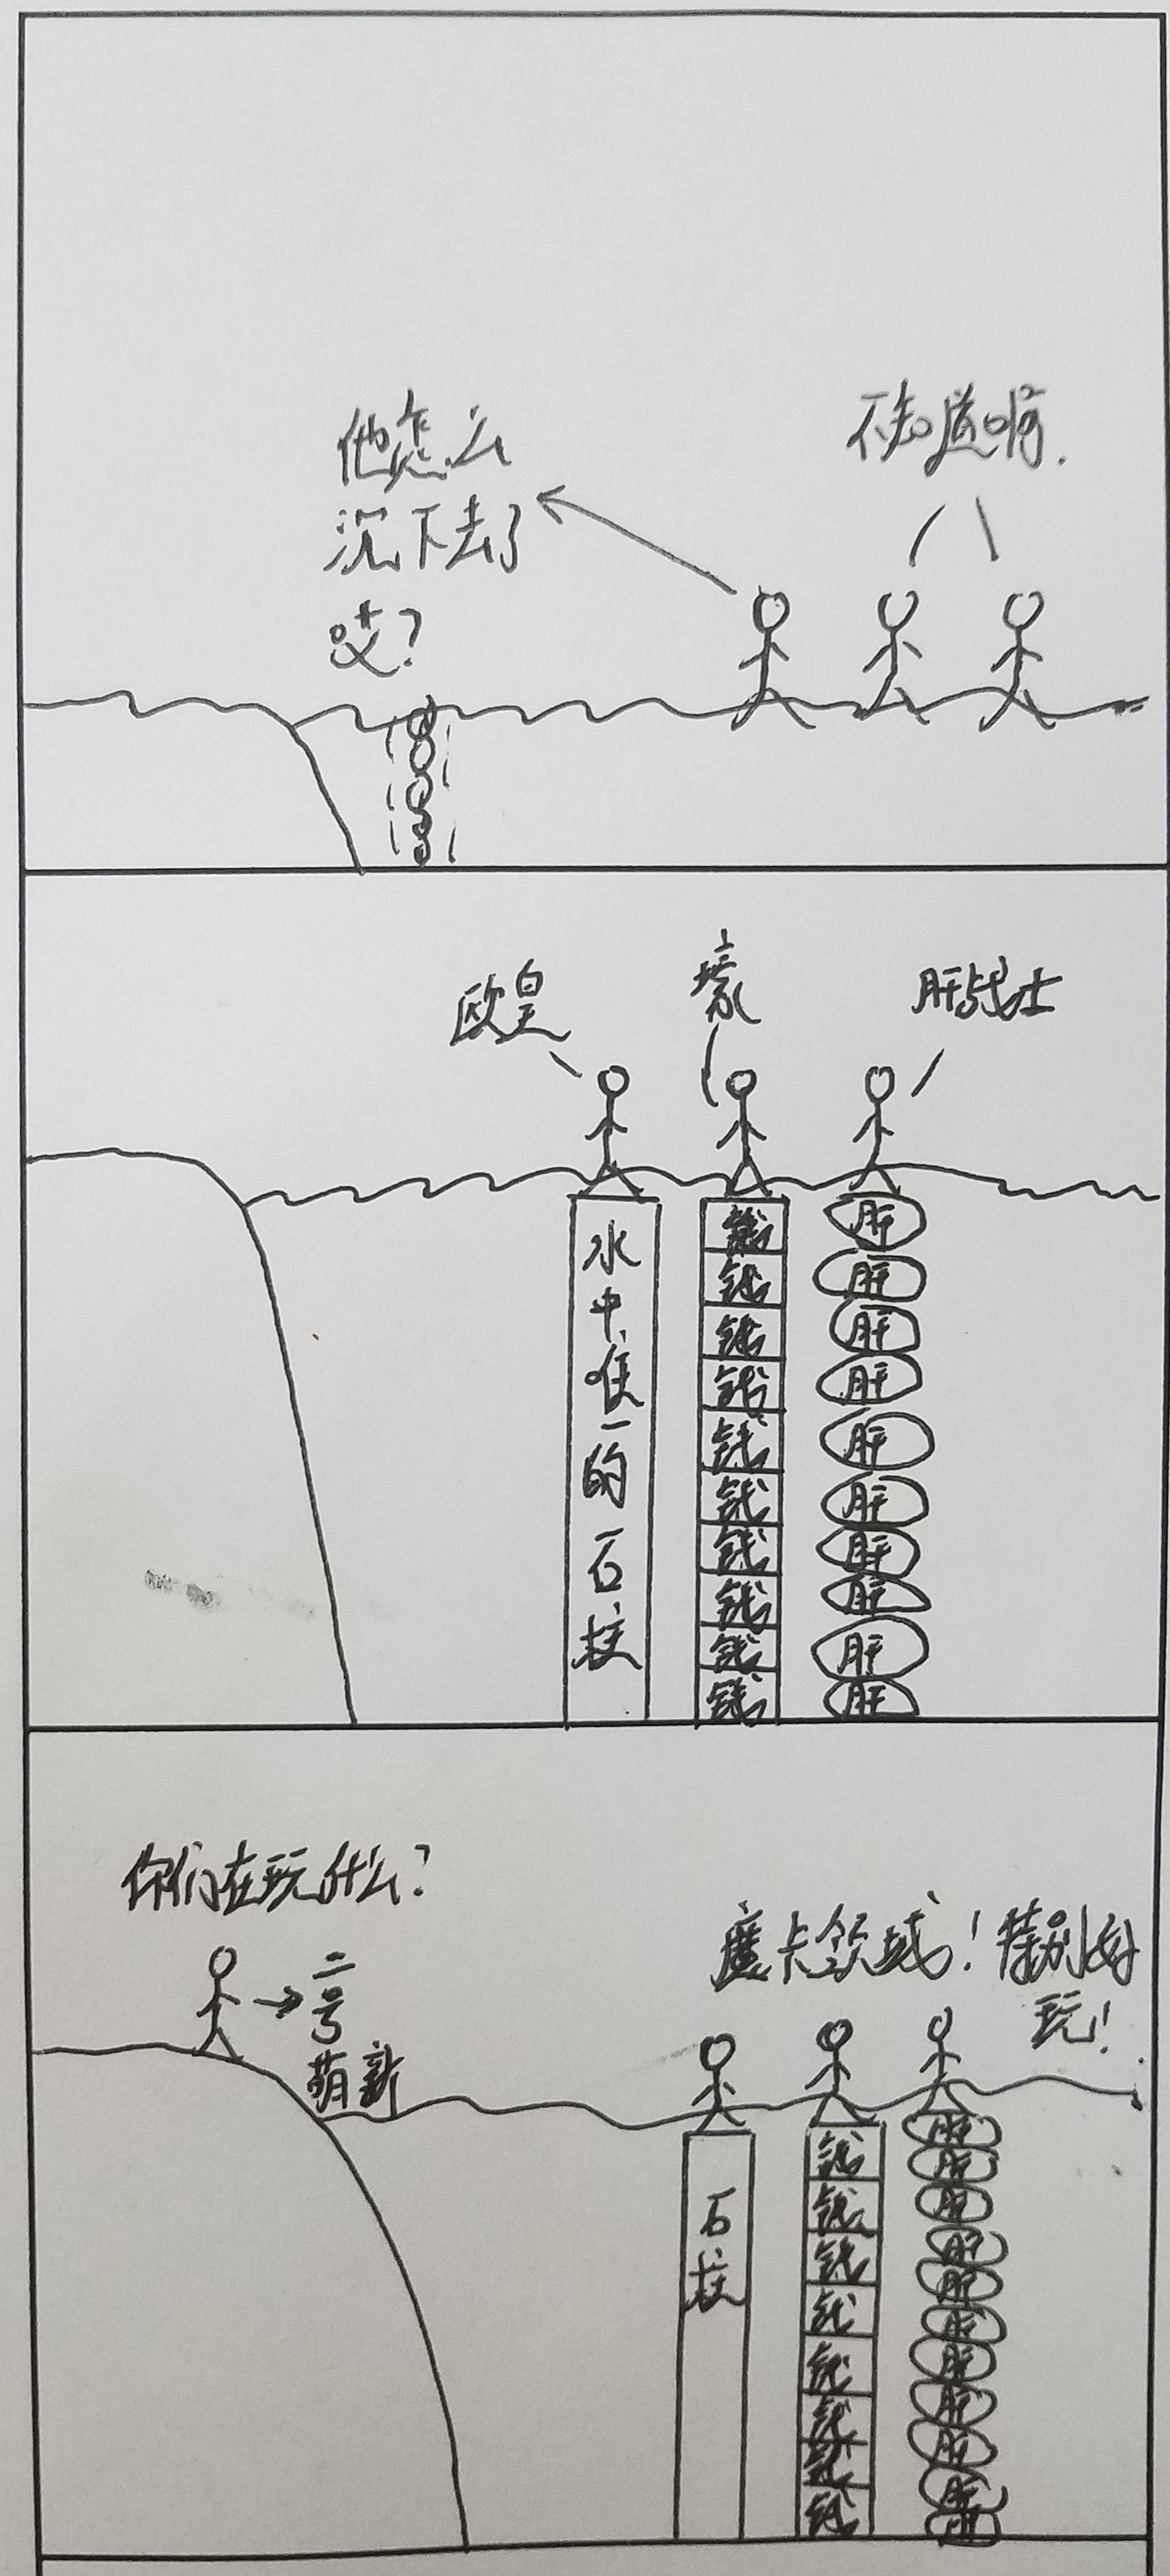 他怎么
沉下去了
哎?
不知道啊.
欧皇
壕
肝战士
水中唯一的石柱
钱
钱
钱
钱
钱
钱
钱
钱
钱
钱
肝
肝
肝
肝
肝
肝
肝
肝
肝
肝
你们在玩什么?
二号
萌新
魔卡领域!特别好
玩!
石柱
钱
钱
钱
钱
钱
钱
钱
钱
肝
肝
肝
肝
肝
肝
肝
肝
肝
肝
肝